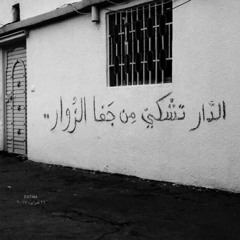 الدَّار تشْكيّ مِن جَفا الزُوار ..